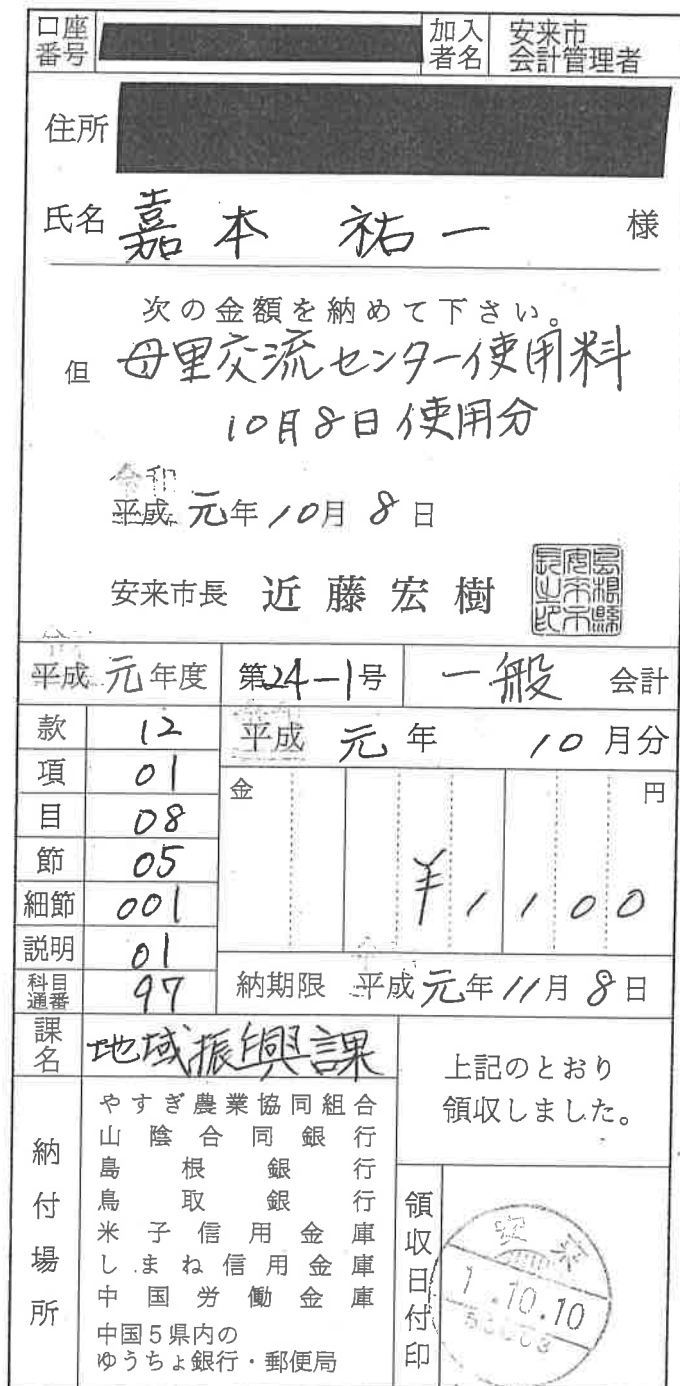 口座番号 加入者名 安来市会計管理者
住所
氏名 嘉本 祐一 様
次の金額を納めて下さい。
但 母里交流センター使用料
10月8日使用分
令和
平成 元年 10月 8日
安来市長 近藤宏樹
島根縣安来市長之印
平成 元年度 第24-1号 一般 会計
款 12
平成 元年 10月分
項 01
目 08
節 05
細節 001
説明 01
科目通番 97
金 ¥1100 円
納期限 平成元年11月8日
課名 地域振興課
上記のとおり
領収しました。
納付場所
やすぎ農業協同組合
山陰合同銀行
島根銀行
鳥取銀行
米子信用金庫
しまね信用金庫
中国労働金庫
中国5県内の
ゆうちょ銀行・郵便局
領収日付印
安来
1.10.10